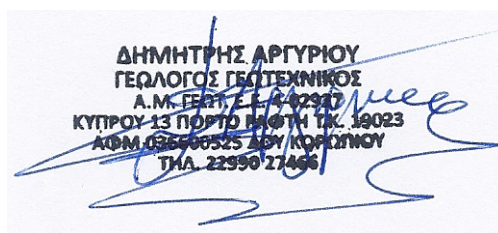 ΔΗΜΗΤΡΗΣ ΑΡΓΥΡΙΟΥ
ΓΕΩΛΟΓΟΣ ΓΕΩΤΕΧΝΙΚΟΣ
Α.Μ. ΓΕΩΤ. Ε.Ε. 4-02927
ΚΥΠΡΟΥ 13 ΠΟΡΤΟ ΡΑΦΤΗ Τ.Κ. 19023
ΑΦΜ 036600525 ΔΟΥ ΚΟΡΩΠΙΟΥ
ΤΗΛ. 22990 27466